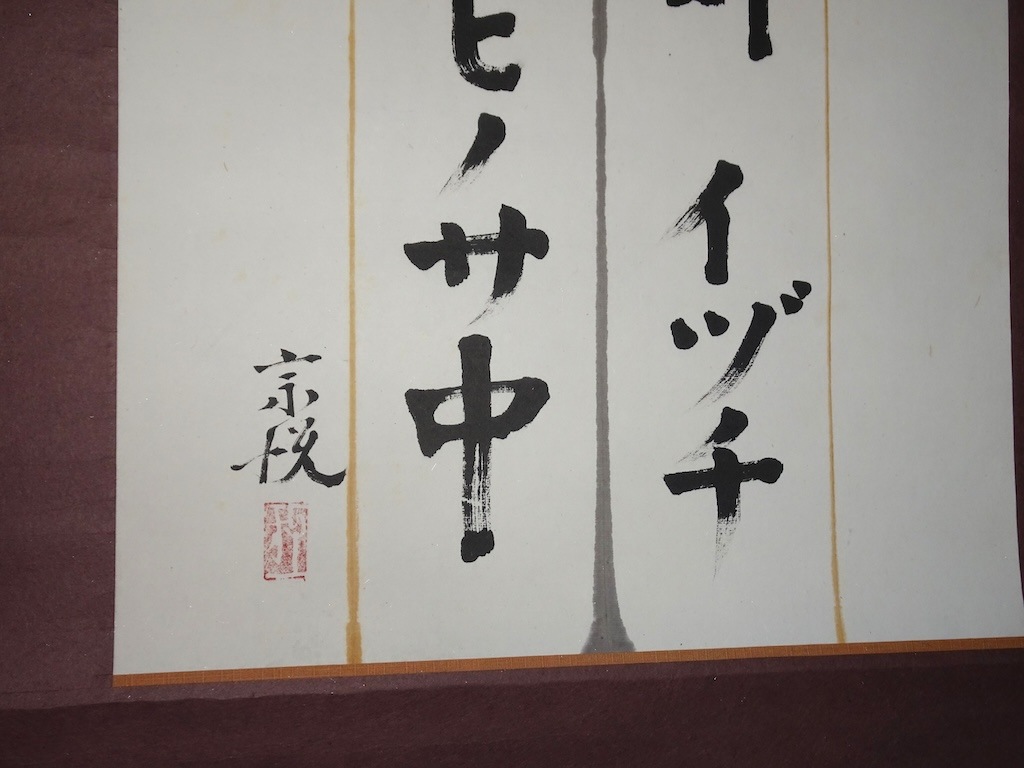 イヅチ
ヒノサ中
宗悦